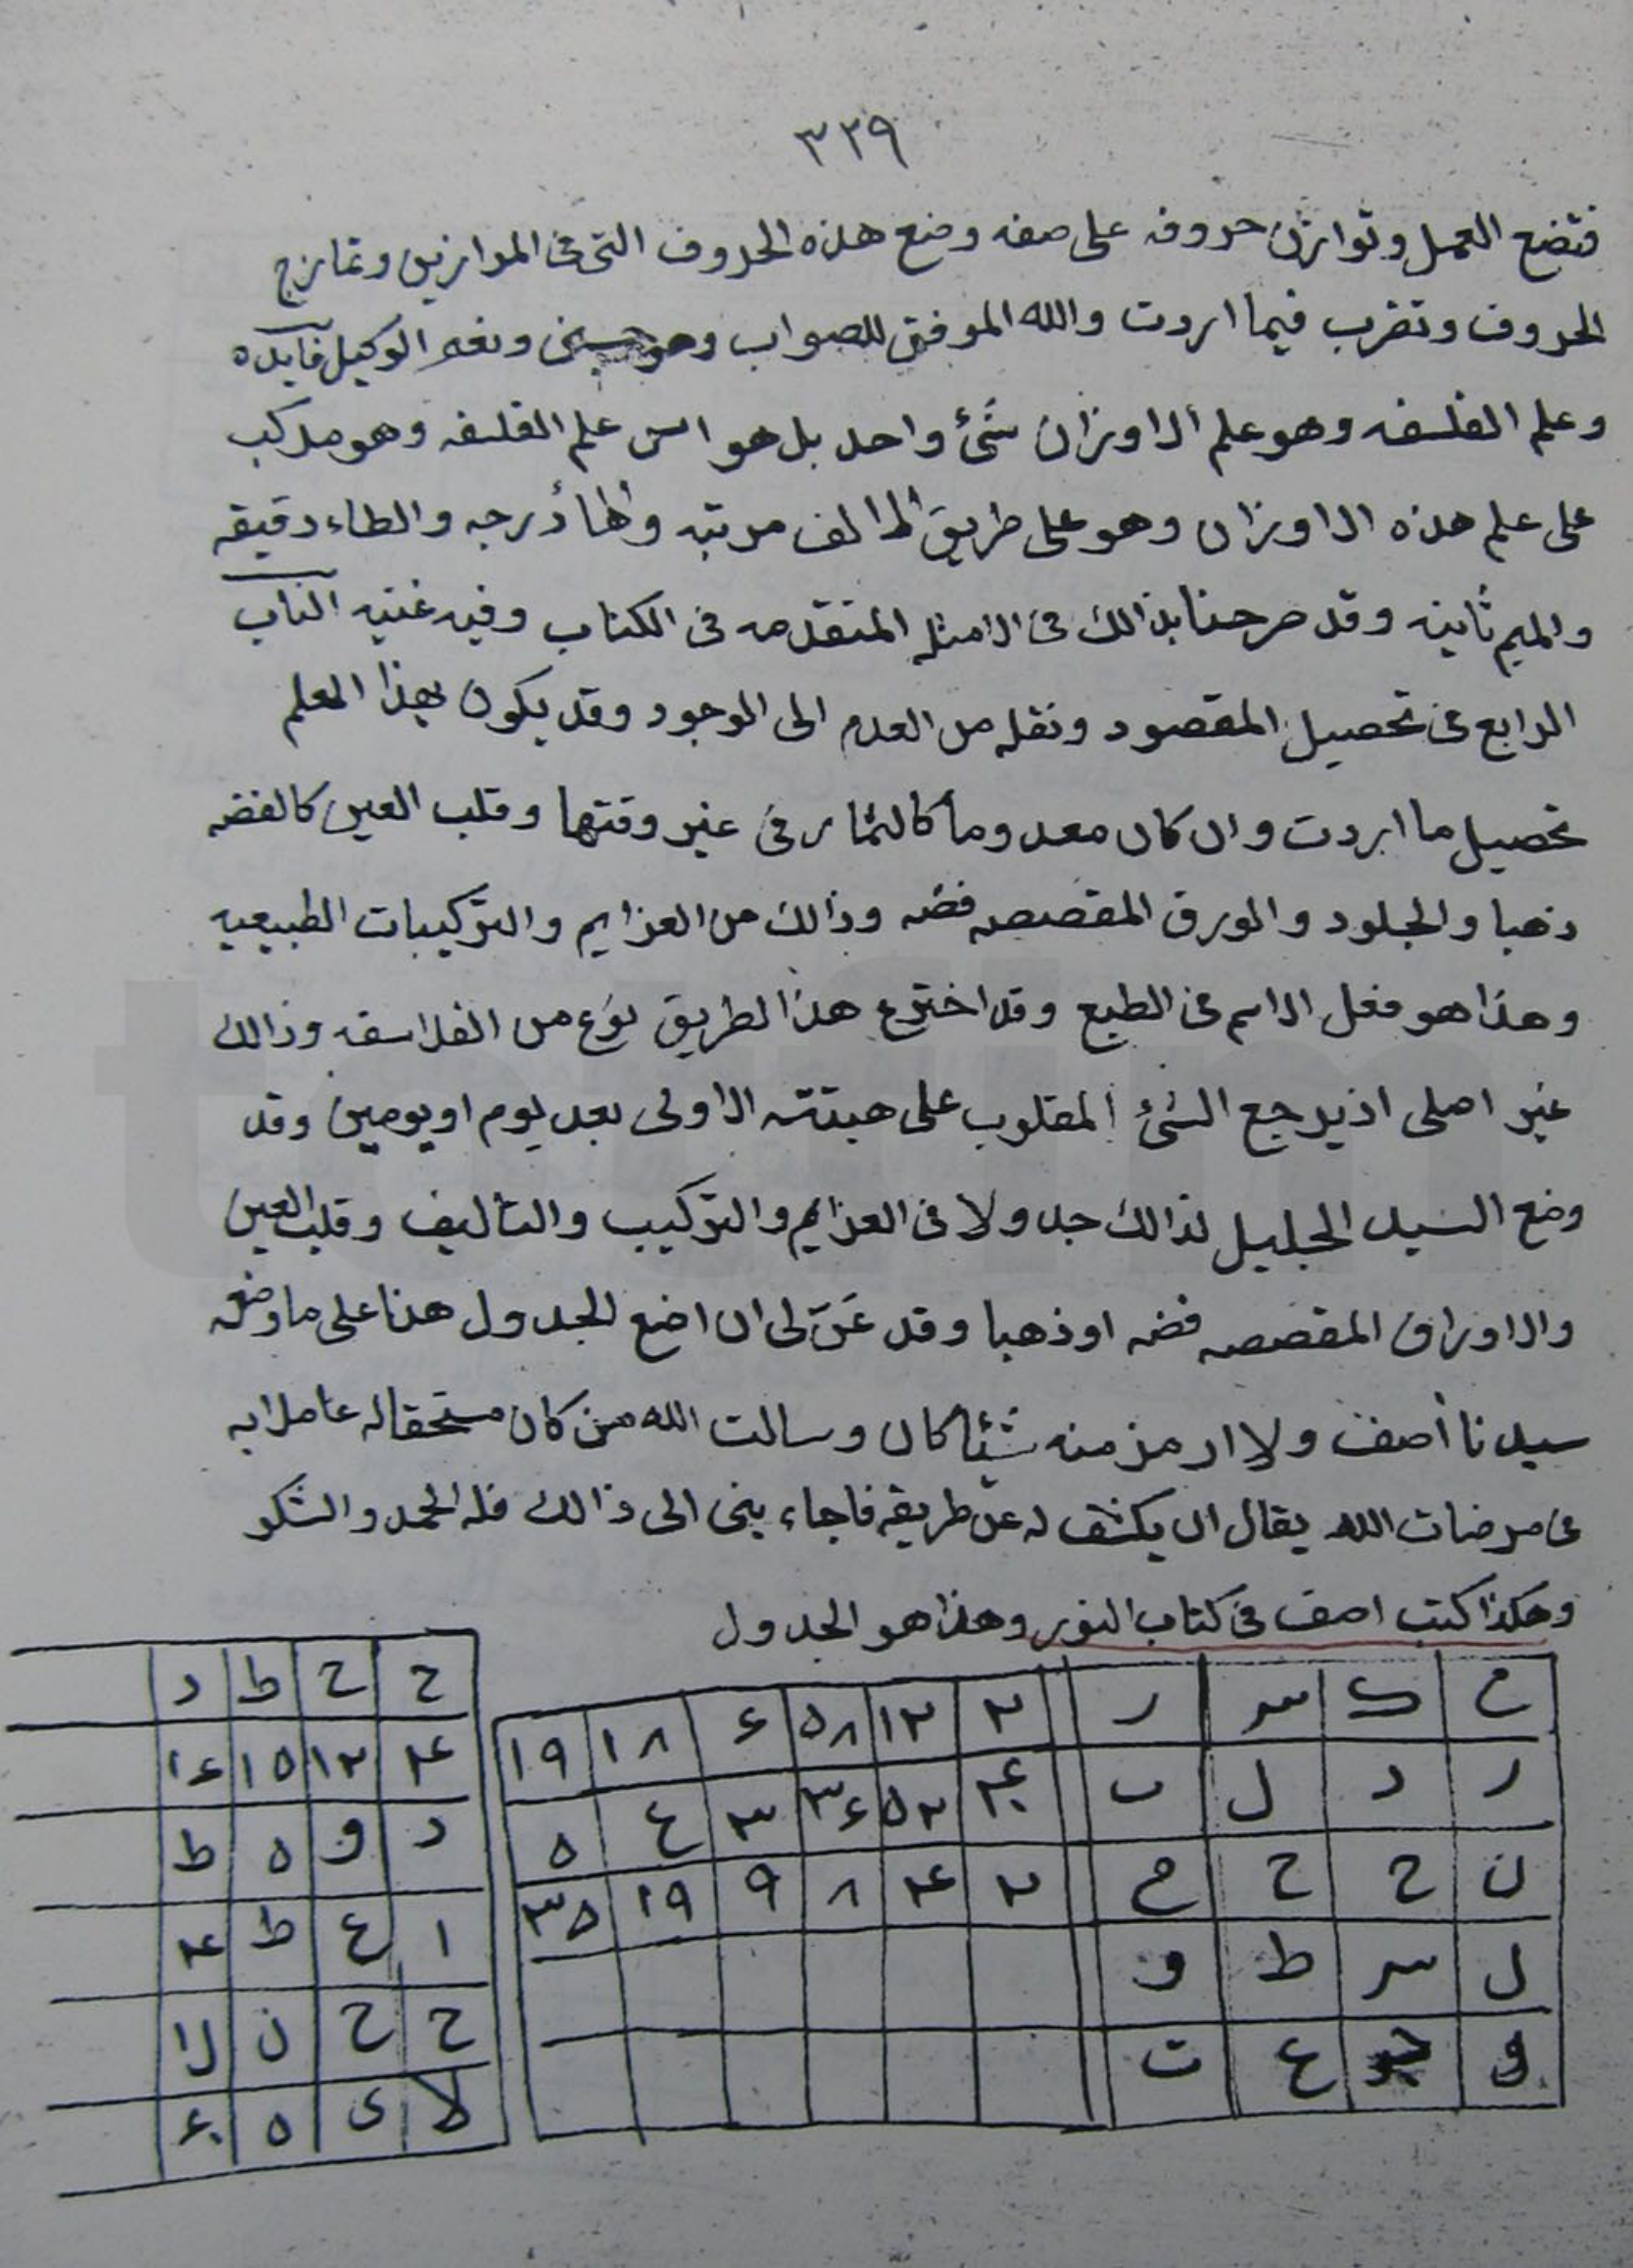 ٣٢٩
فتضع العمل وتوازن حروفه على صفه وضع هذه الحروف التى فى الموازين وتمازج
الحروف وتضرب فيما اردت والله الموفق للصواب وهو حسبى ونعم الوكيل فايده
وعلم الفلسفه وهو علم الاوزان شئ واحد بل هو اس علم الفلسفه وهو مركب
على علم هذه الاوزان وهو على طريق الالف مرتبه والها درجه والطاء دقيقه
والميم ثانيه وقد صرحنا بذالك فى الامثله المتقدمه فى الكتاب وفيه غنيه الباب
الرابع فى تحصيل المقصود ونقله من العدم الى الوجود وقد يكون بهذا العلم
تحصيل ما اردت وان كان معدوما كالثمار فى غير وقتها وقلب العين كالفضه
ذهبا والجلود والورق المقصصه فضه وذالك من العزايم والتركيبات الطبيعيه
وهذا هو فعل الاسم فى الطبع وقد اخترع هذا الطريق نوع من الفلاسفه وذالك
غير اصلى اذ يرجع الشئ المقلوب على هيئته الاولى بعد يوم او يومين وقد
وضع السيد الجليل لذالك جدولا فى العزايم والتركيب والتاليف وقلب العين
والاوراق المقصصه فضه او ذهبا وقد عَنّ لى ان اضع الجدول هنا على ما وضعه
سيدنا أصف ولا ارمز منه شيئا كان وسالت الله من كان مستحقا له عاملا به
فى مرضات الله يقال ان يكشف له عن طريقه فاجاء بنى الى ذالك فله الحمد والشكر
وهكذا كتب اصف فى كتاب النور وهذا هو الجدول
ح ك س ر ٢ ١٢ ٥٨ ٤ ١٨ ١٩
ر د ل ب ٤ ٥٢ ٣٤ ٣ ع ٥
ن ح ح ح ٢ ٤ ٨ ٩ ١٩ ٣٥
ل س ط و
و ع ت
ح ح ط د
٤ ١٢ ١٥ ١٤
د و ٥ ط
ا ع ط ٤
ح ح ن لا
لا ى ٥ ٤